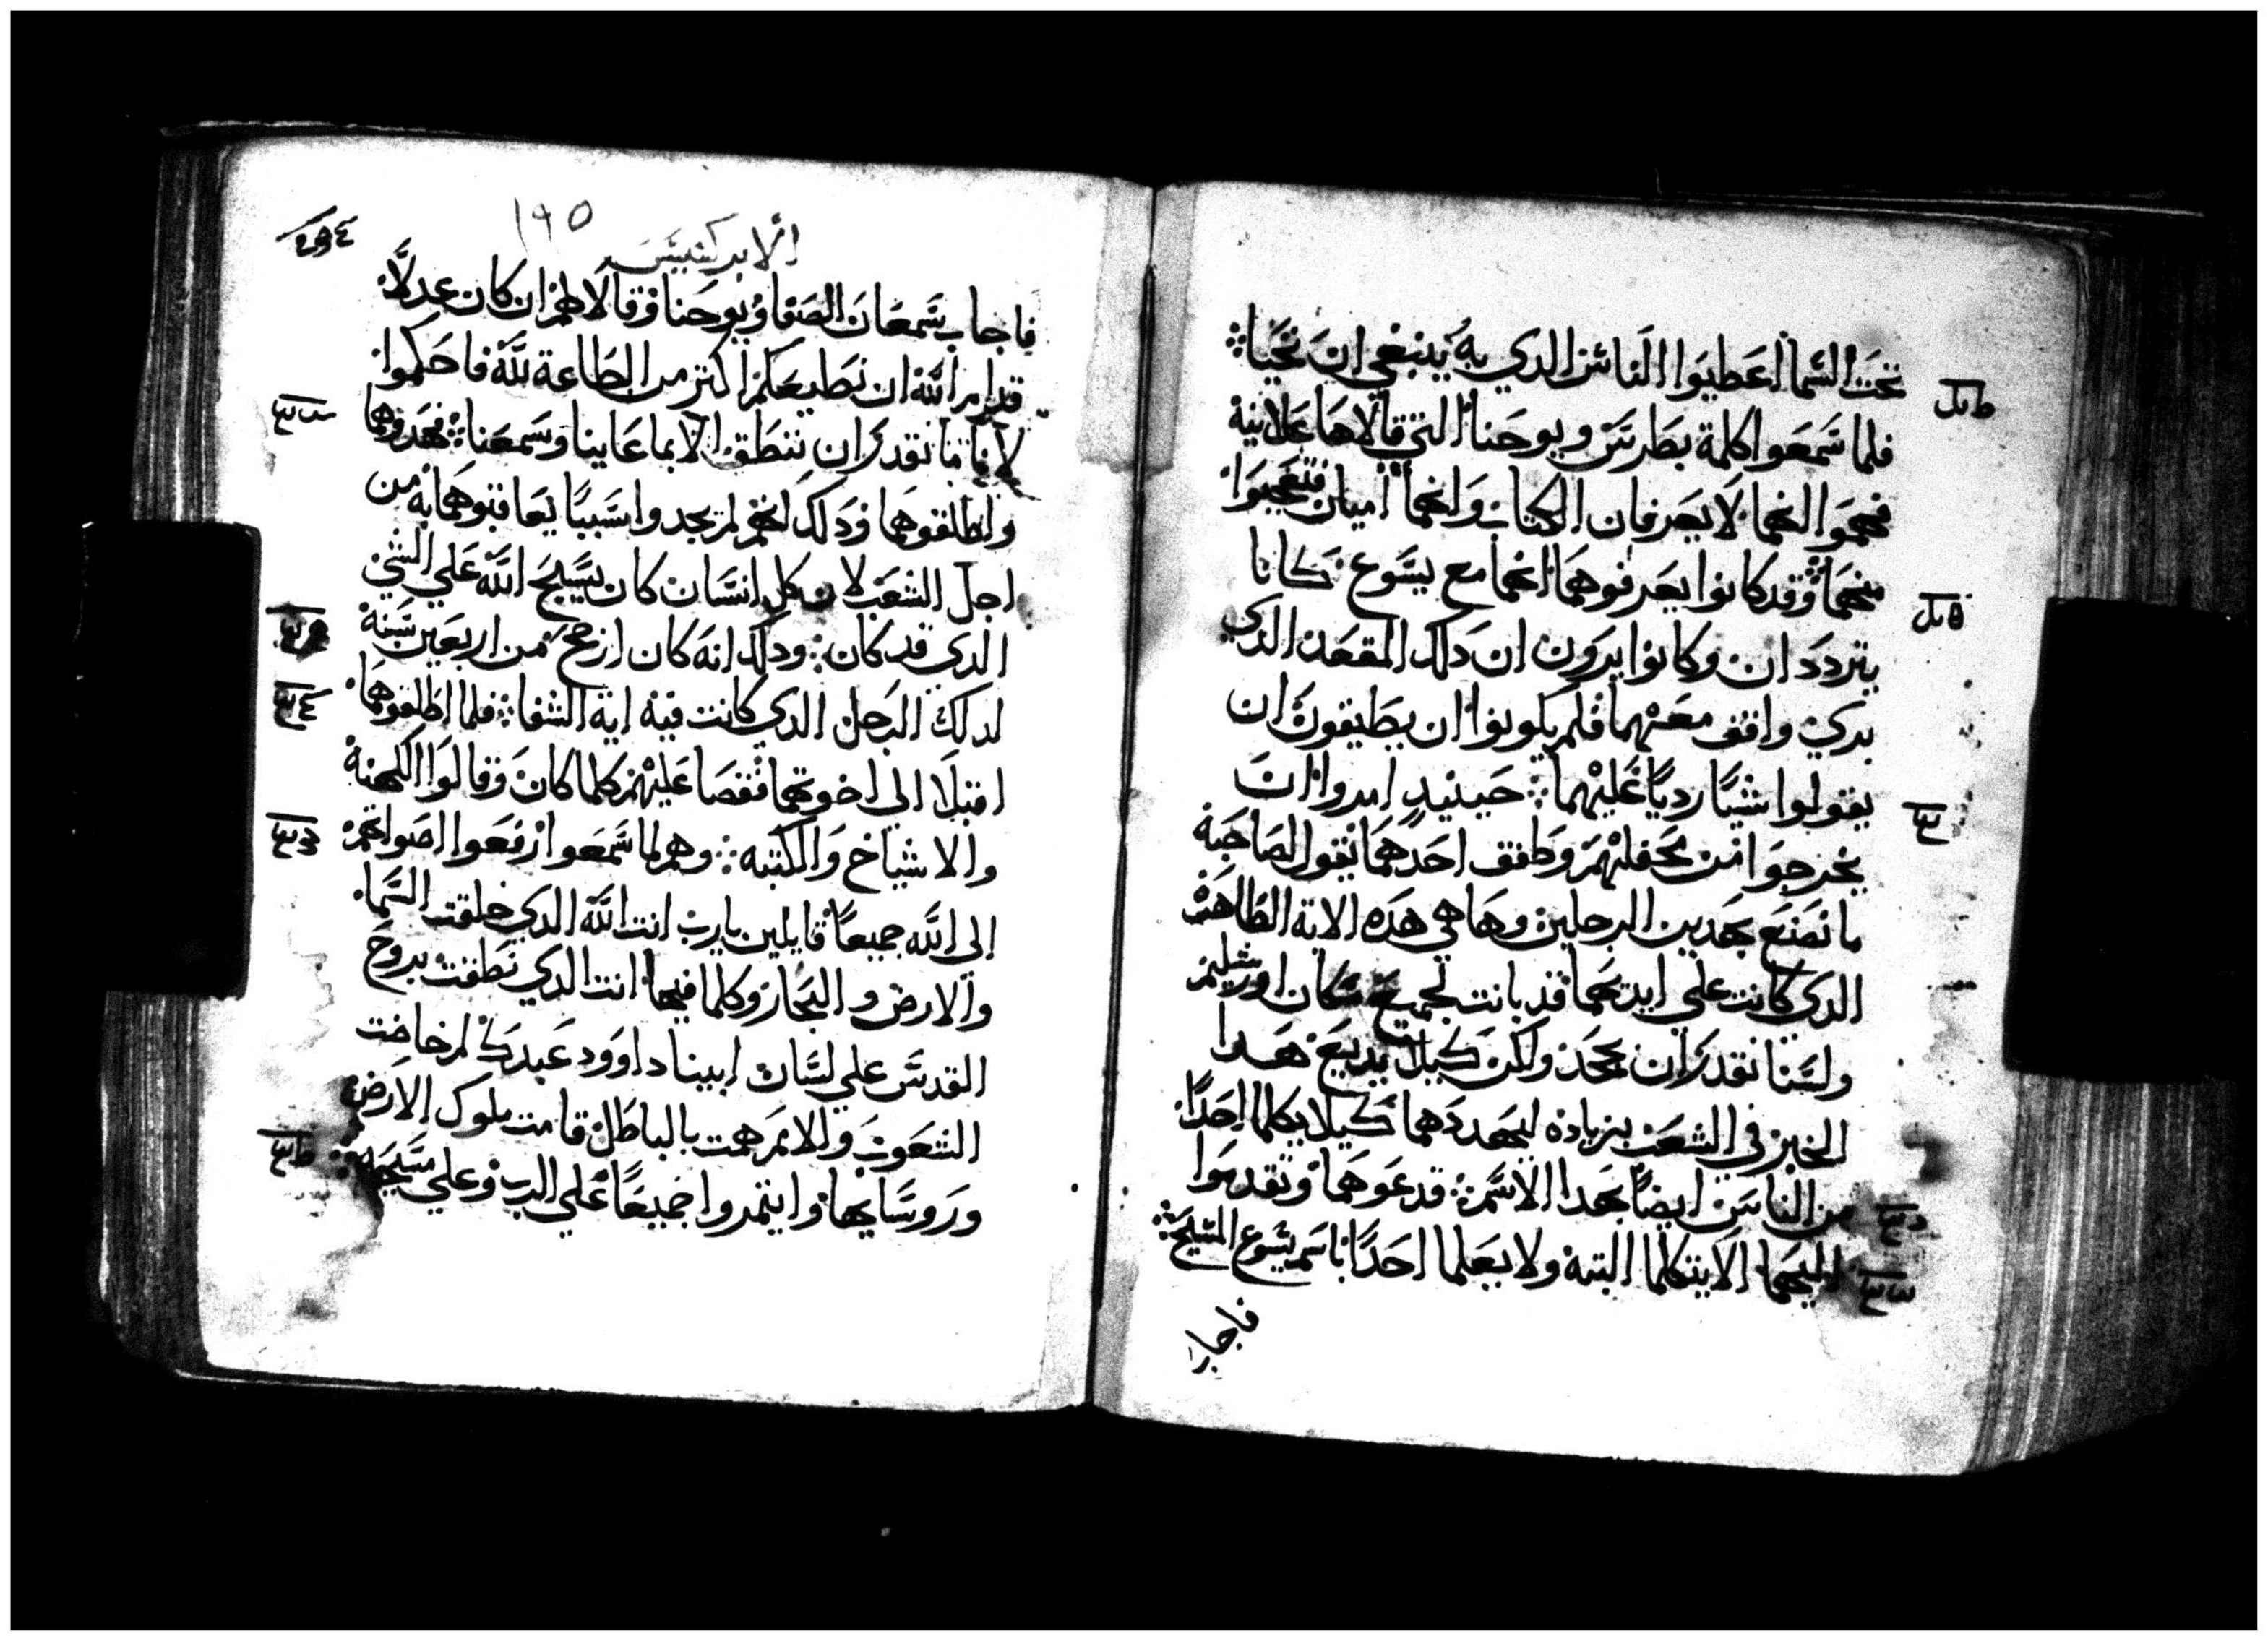 تحت السما اعطيوا الناس الدي به ينبغي ان نحيا
فلما سمعوا كلمة بطرس ويوحنا التي قالاها علانية
فهموا انهما لا يعرفان الكتاب وانهما اميان فتعجبوا
منهما وقد كانوا يعرفوهما انهما مع يسوع كانا
يترددان وكانوا يرون ان دلك المقعد الدي
بري واقف معهما فلم يكونوا ان يطيقون ان
يقولوا شيا رديا عليهما حينيد امروا ان
يخرجوا من محفلهم وطفق احدهما يقول لصاحبه
ما نصنع بهدين الرجلين وها هي هده الاية الظاهرة
الدي كانت علي ايديهما قد بانت لجميع سكان اورشليم
ولسنا نقدر ان نجحد ولكن كيلا يديع هدا
الخبر في الشعب بزياده ليهددهما كيلا يكلما احدا
من الناس ايضا بهدا الاسم قد عوهما وتقدموا
اليهما الا يتكلما البته ولا يعلما احدا باسم يسوع المسيح
فاجاب
١٩٥
الابركسيس
فاجاب سمعان الصفا ويوحنا وقالا لهم ان كان عدلا
قدام الله ان نطيعكم اكتر من الطاعة لله فاحكموا
لاننا ما نقدر ان ننطق الا بما عاينا وسمعنا فهددوهما
واطلقوهما ودلك انهم لم يجدوا سببا يعاقبوهما به من
اجل الشعب لان كل انسان كان يسبح الله علي الشي
الدي قد كان ودلك انه كان ارجح من اربعين سنه
لدلك الرجل الدي كانت فيه اية الشفا فلما اطلقوهما
اقبلا الى اخوتهما فقصا عليهم كلما كان وقالوا الكهنة
والاشياخ والكتبه وهم لما سمعوا رفعوا اصواتهم
الي الله جميعا قايلين يارب انت الله الدي خلقت السما
والارض والبحار وكلما فيها انت الدي نطقت بروح
القدس علي لسان ابينا داوود عبدك لم خاضت
الشعوب والامم همت بالباطل قامت ملوك الارض
وروسايها وايتمروا جميعا علي الرب وعلي مسيحه